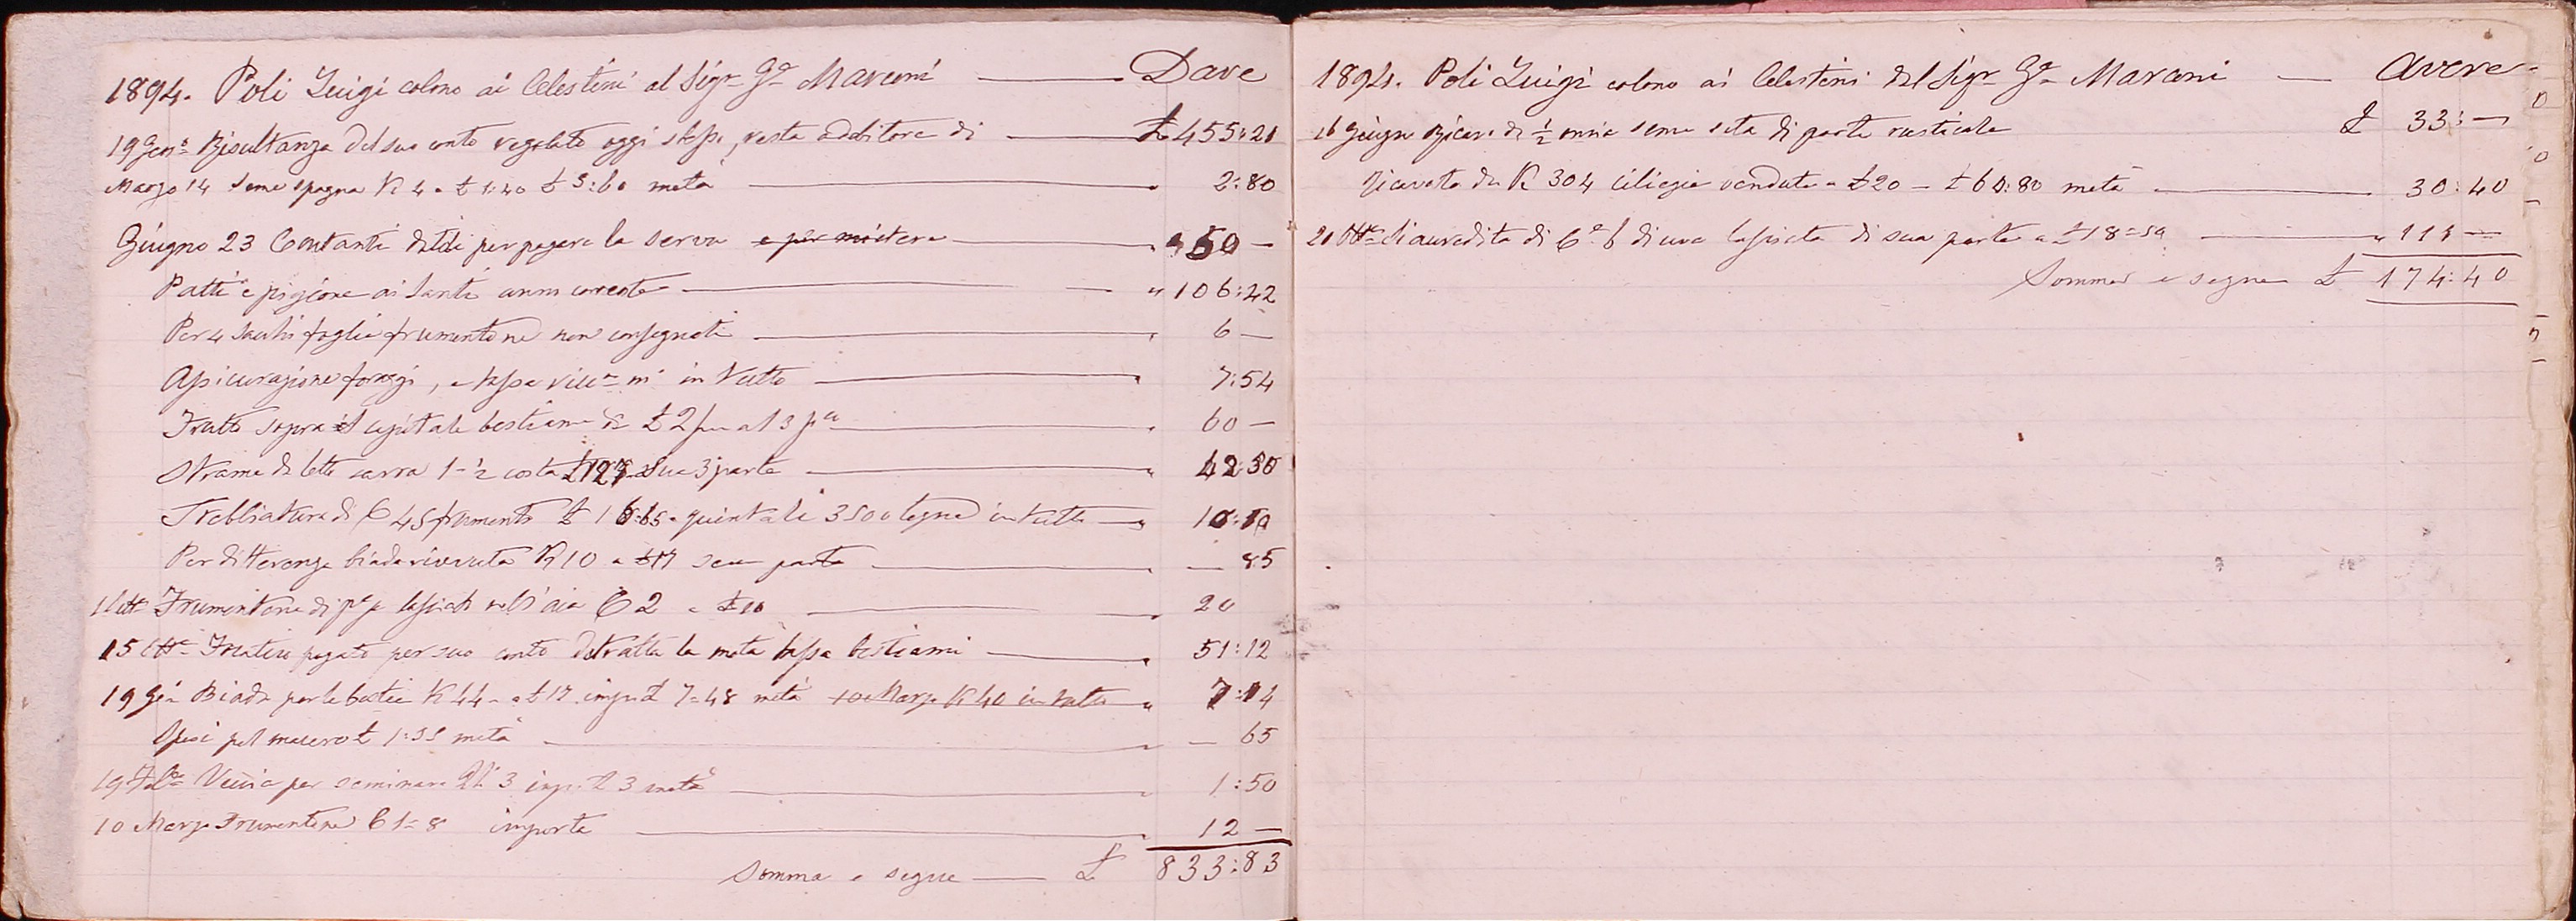 1894. Poli Luigi colono ai Celestini al Sigr. Ga Marconi — Dare
19 Gen. Risultanza del suo conto regolato oggi stesso, resta debitore di — £ 455:21
Marzo 14 Seme spagna K 4 a £ 1:40 £ 5:60 metà — 2:80
Giugno 23 Contanti datoli per pagare la serva e per mietere — " 50 —
Patti e pigione ai Santi anno corrente — " 106:42
Per 4 sacchi foglia frumentone non consegnati — 6 —
Assicurazione foraggi, e tassa in tutto — 7:54
Frutto sopra il capitale bestiame di — 60 —
Strame da letto carra 1-½ costa £ sua 3 parte — 42:50
Trebbiatura di C 45 frumento £ quintali 350 legna in tutto — 10:
Per differenza biada ricevuta K 10 a £17 sua parte — — 85
Frumentone di lasciato nell'aia C 2 a £10 — 20
15 Ott. pagato per suo conto detratta la metà tassa bestiami — 51:12
19 Gen. Biada per le bestie K 44 a £ 17 7=48 metà 10 Marzo K 40 in tutto — " 7:14
Spesi pel macero £ metà — — 65
19 Veccia per seminare 3 £ 3 metà — 1:50
10 Marzo Frumentone C 1=8 importa — 12 —
Somma e segue — £ 833:83
1894. Poli Luigi colono ai Celestini del Sigr. Ga Marconi — Avere
16 Giugno Ricavo di ½ oncia seme seta di parte rusticale £ 33: —
Ricavato da K 304 ciliegia venduta a £20 — £ 60:80 metà — 30:40
di uva lasciata di sua parte a £18=50 — " 111 —
Somma e segue £ 174:40